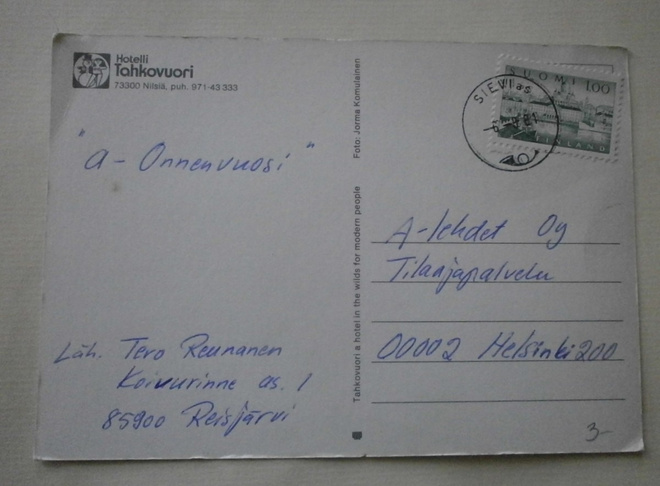 Hotelli
Tahkovuori
73300 Nilsiä, puh. 971-43 333
"a-Onnenvuosi"
Läh. Tero Reunanen
Koivurinne as. 1
85900 Reisjärvi
Foto: Jorma Komulainen
Tahkovuori a hotel in the wilds for modern people
SUOMI 1.00
FINLAND
SIEVI as
A-lehdet Oy
Tilaajapalvelu
00002 Helsinki 200
3-